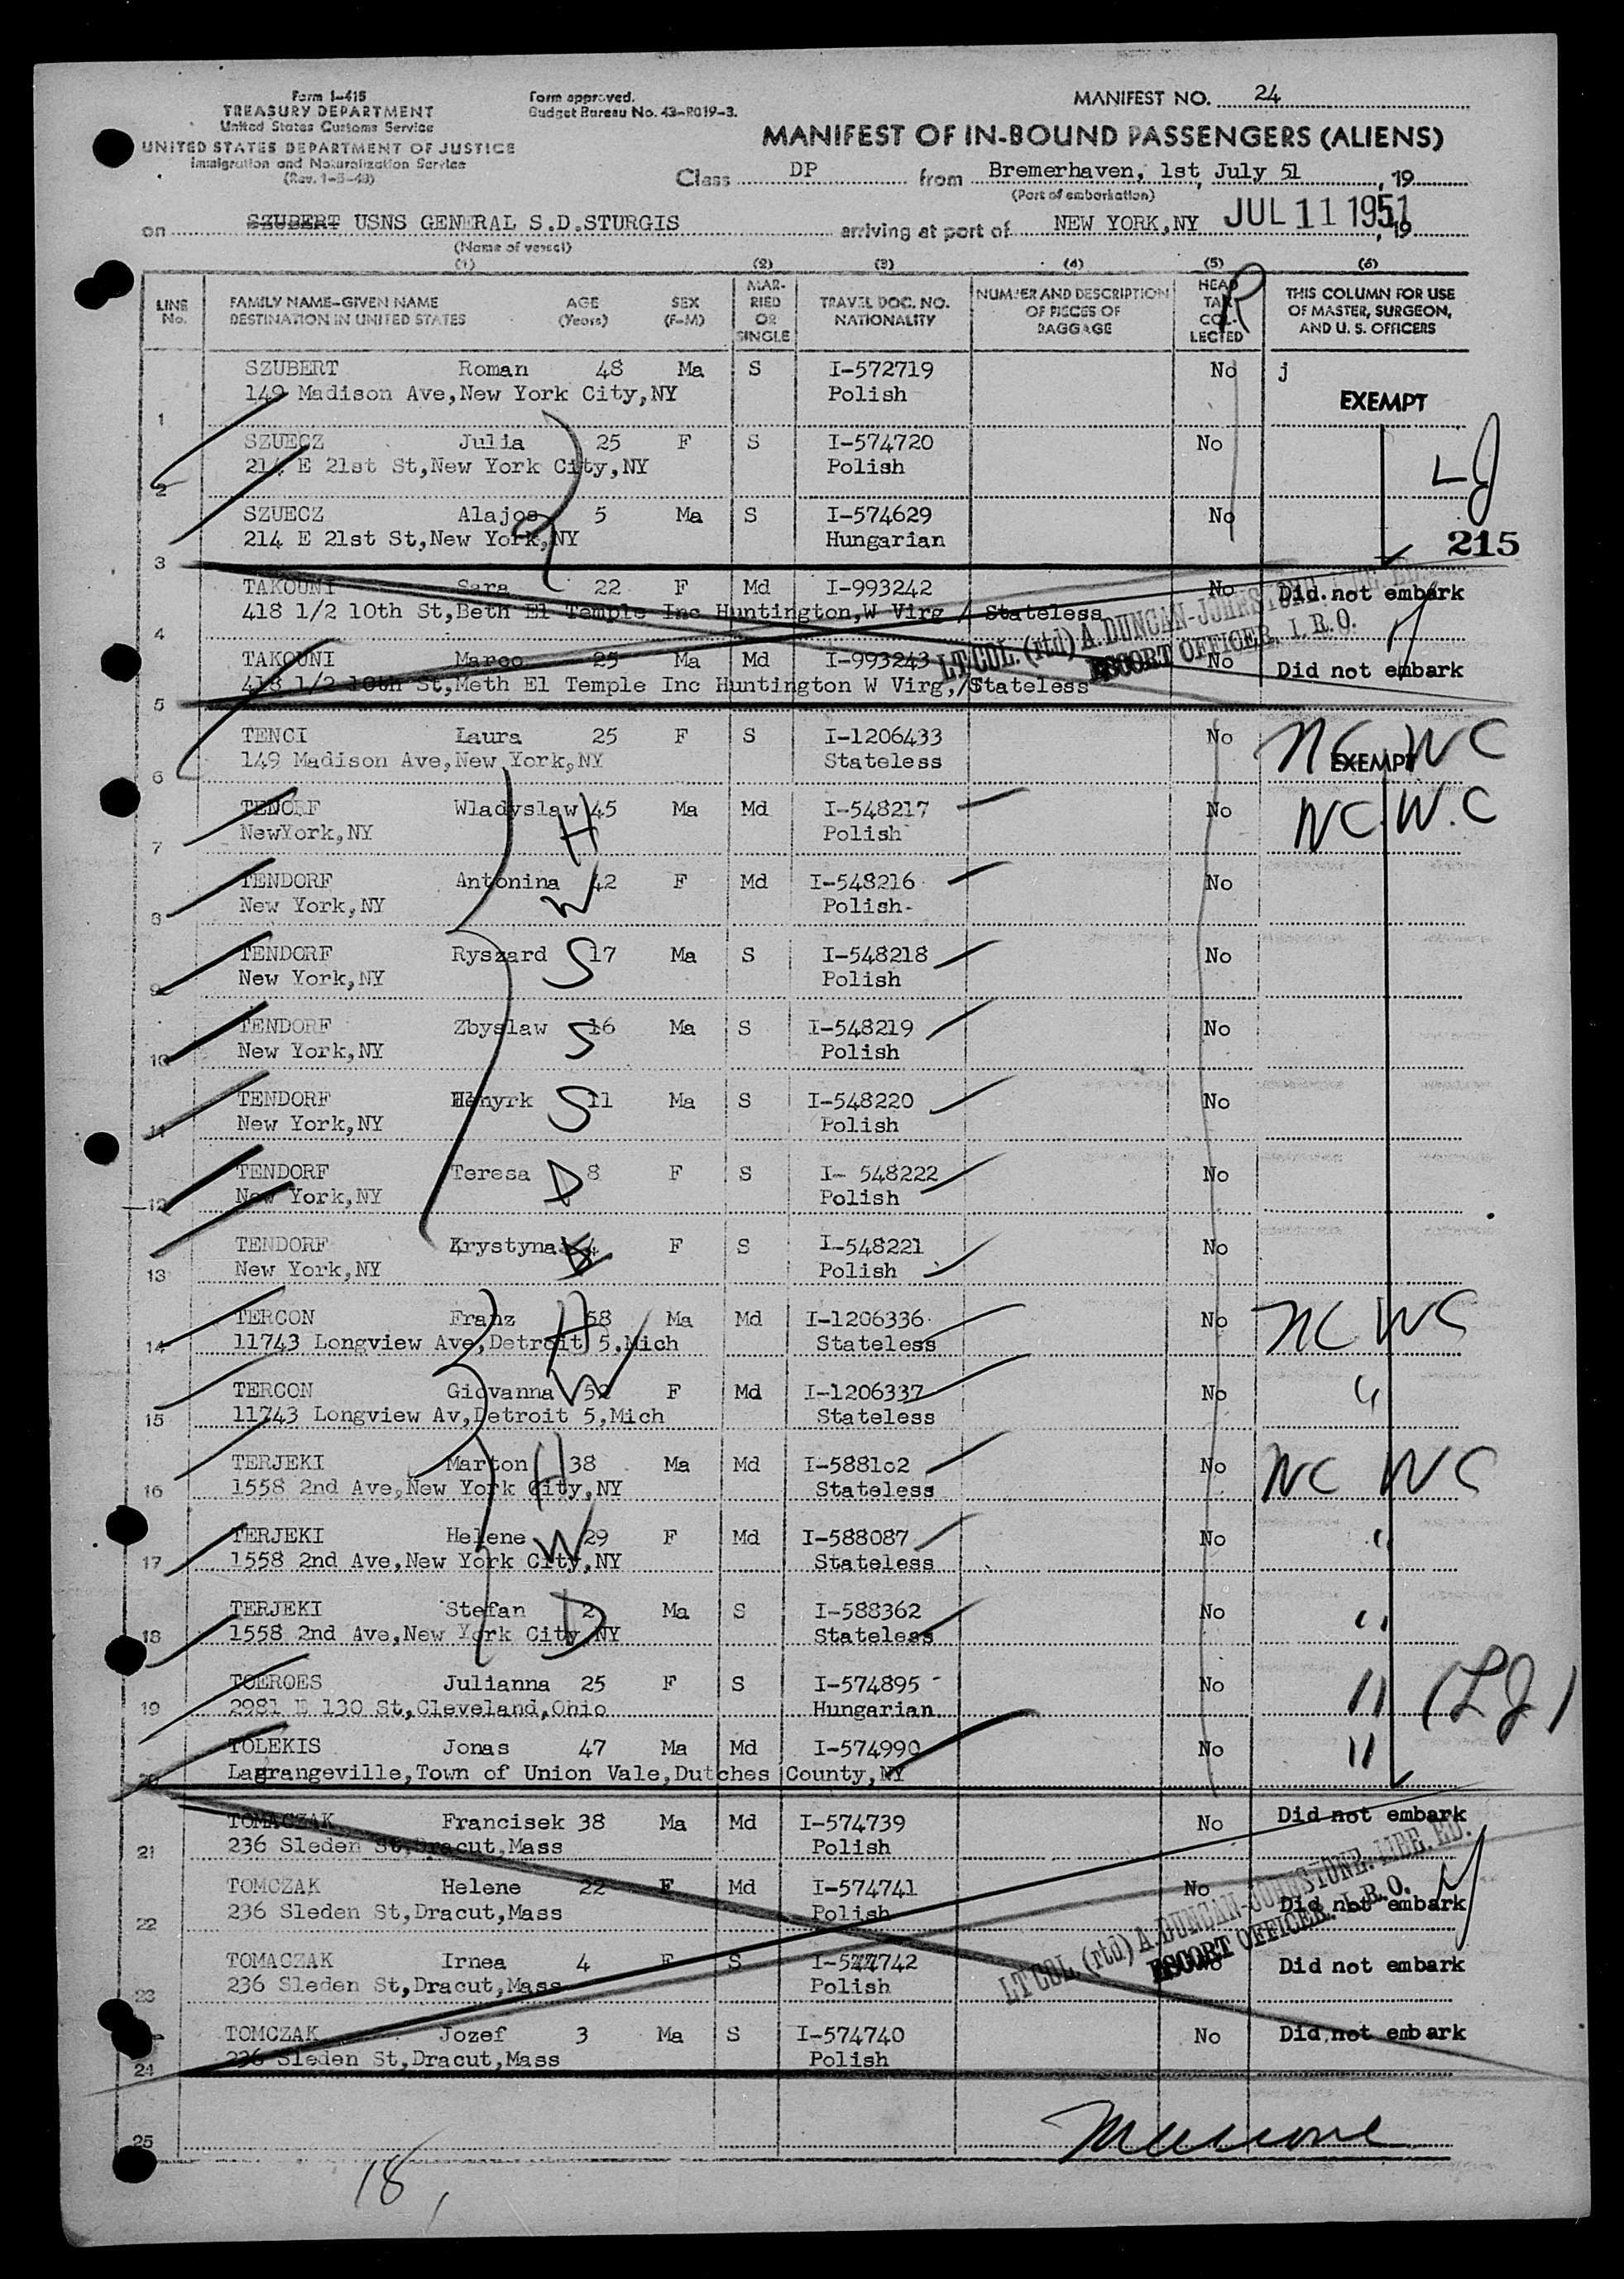 Form I-415
TREASURY DEPARTMENT
United States Customs Service
UNITED STATES DEPARTMENT OF JUSTICE
Immigration and Naturalization Service
(Rev. 1-5-48)
Form approved.
Budget Bureau No. 43-R019-3.
MANIFEST NO. 24
MANIFEST OF IN-BOUND PASSENGERS (ALIENS)
Class DP from Bremerhaven, 1st, July 51, 19
(Port of embarkation)
on SZUBERT USNS GENERAL S.D.STURGIS arriving at port of NEW YORK,NY JUL 11 1951, 19
(Name of vessel)
(1) (2) (3) (4) (5) (6)
LINE No.
FAMILY NAME-GIVEN NAME AGE SEX
DESTINATION IN UNITED STATES (Years) (F-M)
MAR-RIED OR SINGLE
TRAVEL DOC. NO. NATIONALITY
NUMBER AND DESCRIPTION OF PIECES OF BAGGAGE
HEAD TAX COL-LECTED
R
THIS COLUMN FOR USE OF MASTER, SURGEON, AND U. S. OFFICERS
SZUBERT Roman 48 Ma S I-572719 No j
1 149 Madison Ave,New York City,NY Polish EXEMPT
SZUECZ Julia 25 F S I-574720 No
2 214 E 21st St,New York City,NY Polish LJ
SZUECZ Alajos 5 Ma S I-574629 No
3 214 E 21st St,New York,NY Hungarian 215
TAKOUNI Sara 22 F Md I-993242 No Did not embark
4 418 1/2 10th St,Beth El Temple Inc Huntington,W Virg / Stateless
LT COL. (rtd) A. DUNCAN-JOHNSTONE,
ESCORT OFFICER, I. R. O.
TAKOUNI Marco 25 Ma Md I-993243 No Did not embark
5 418 1/2 10th St,Meth El Temple Inc Huntington W Virg,/Stateless
TENCI Laura 25 F S I-1206433 No NC WC
6 149 Madison Ave,New York,NY Stateless EXEMPT
TENORF Wladyslaw 45 Ma Md I-548217 No NC. W.C
7 NewYork,NY H Polish
TENDORF Antonina 42 F Md I-548216 No
8 New York,NY W Polish-
TENDORF Ryszard S 17 Ma S I-548218 No
9 New York,NY Polish
TENDORF Zbyslaw S 16 Ma S I-548219 No
10 New York,NY Polish
TENDORF Henyrk S 11 Ma S I-548220 No
11 New York,NY Polish
TENDORF Teresa D 8 F S I- 548222 No
12 New York,NY Polish
TENDORF Krystyna 4 F S I-548221 No
13 New York,NY Polish
TERCON Franz H 58 Ma Md I-1206336 No NC WC
14 11743 Longview Ave,Detroit 5,Mich Stateless
TERCON Giovanna W 52 F Md I-1206337 No "
15 11743 Longview Av,Detroit 5,Mich Stateless
TERJEKI Marton H 38 Ma Md I-588102 No NC WC
16 1558 2nd Ave,New York City,NY Stateless
TERJEKI Helene W 29 F Md I-588087 No "
17 1558 2nd Ave,New York City,NY Stateless
TERJEKI Stefan D 2 Ma S I-588362 No "
18 1558 2nd Ave,New York City,NY Stateless
TOEROES Julianna 25 F S I-574895 No " (LJ)
19 2981 E 130 St,Cleveland,Ohio Hungarian
TOLEKIS Jonas 47 Ma Md I-574990 No "
20 Lagrangeville,Town of Union Vale,Dutches County,NY
TOMACZAK Francisek 38 Ma Md I-574739 No Did not embark
21 236 Sleden St,Dracut,Mass Polish
TOMCZAK Helene 22 F Md I-574741 No Did not embark
22 236 Sleden St,Dracut,Mass Polish
LT COL. (rtd) A. DUNCAN-JOHNSTONE,
ESCORT OFFICER, I. R. O.
TOMACZAK Irnea 4 F S I-574742 No Did not embark
23 236 Sleden St,Dracut,Mass Polish
TOMCZAK Jozef 3 Ma S I-574740 No Did not embark
24 236 Sleden St,Dracut,Mass Polish
25
18